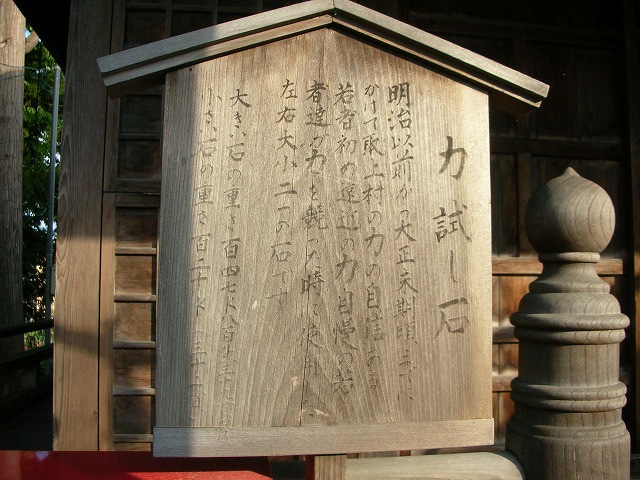 力試し石
明治以前から大正末期頃までに
かけて取上村の力の自信ある
若者初め遠近の力自慢の若
者達が力を競った時に使用
左右大小二つの石です
大きい石の重さ百四七
小さい石の重さ百二十